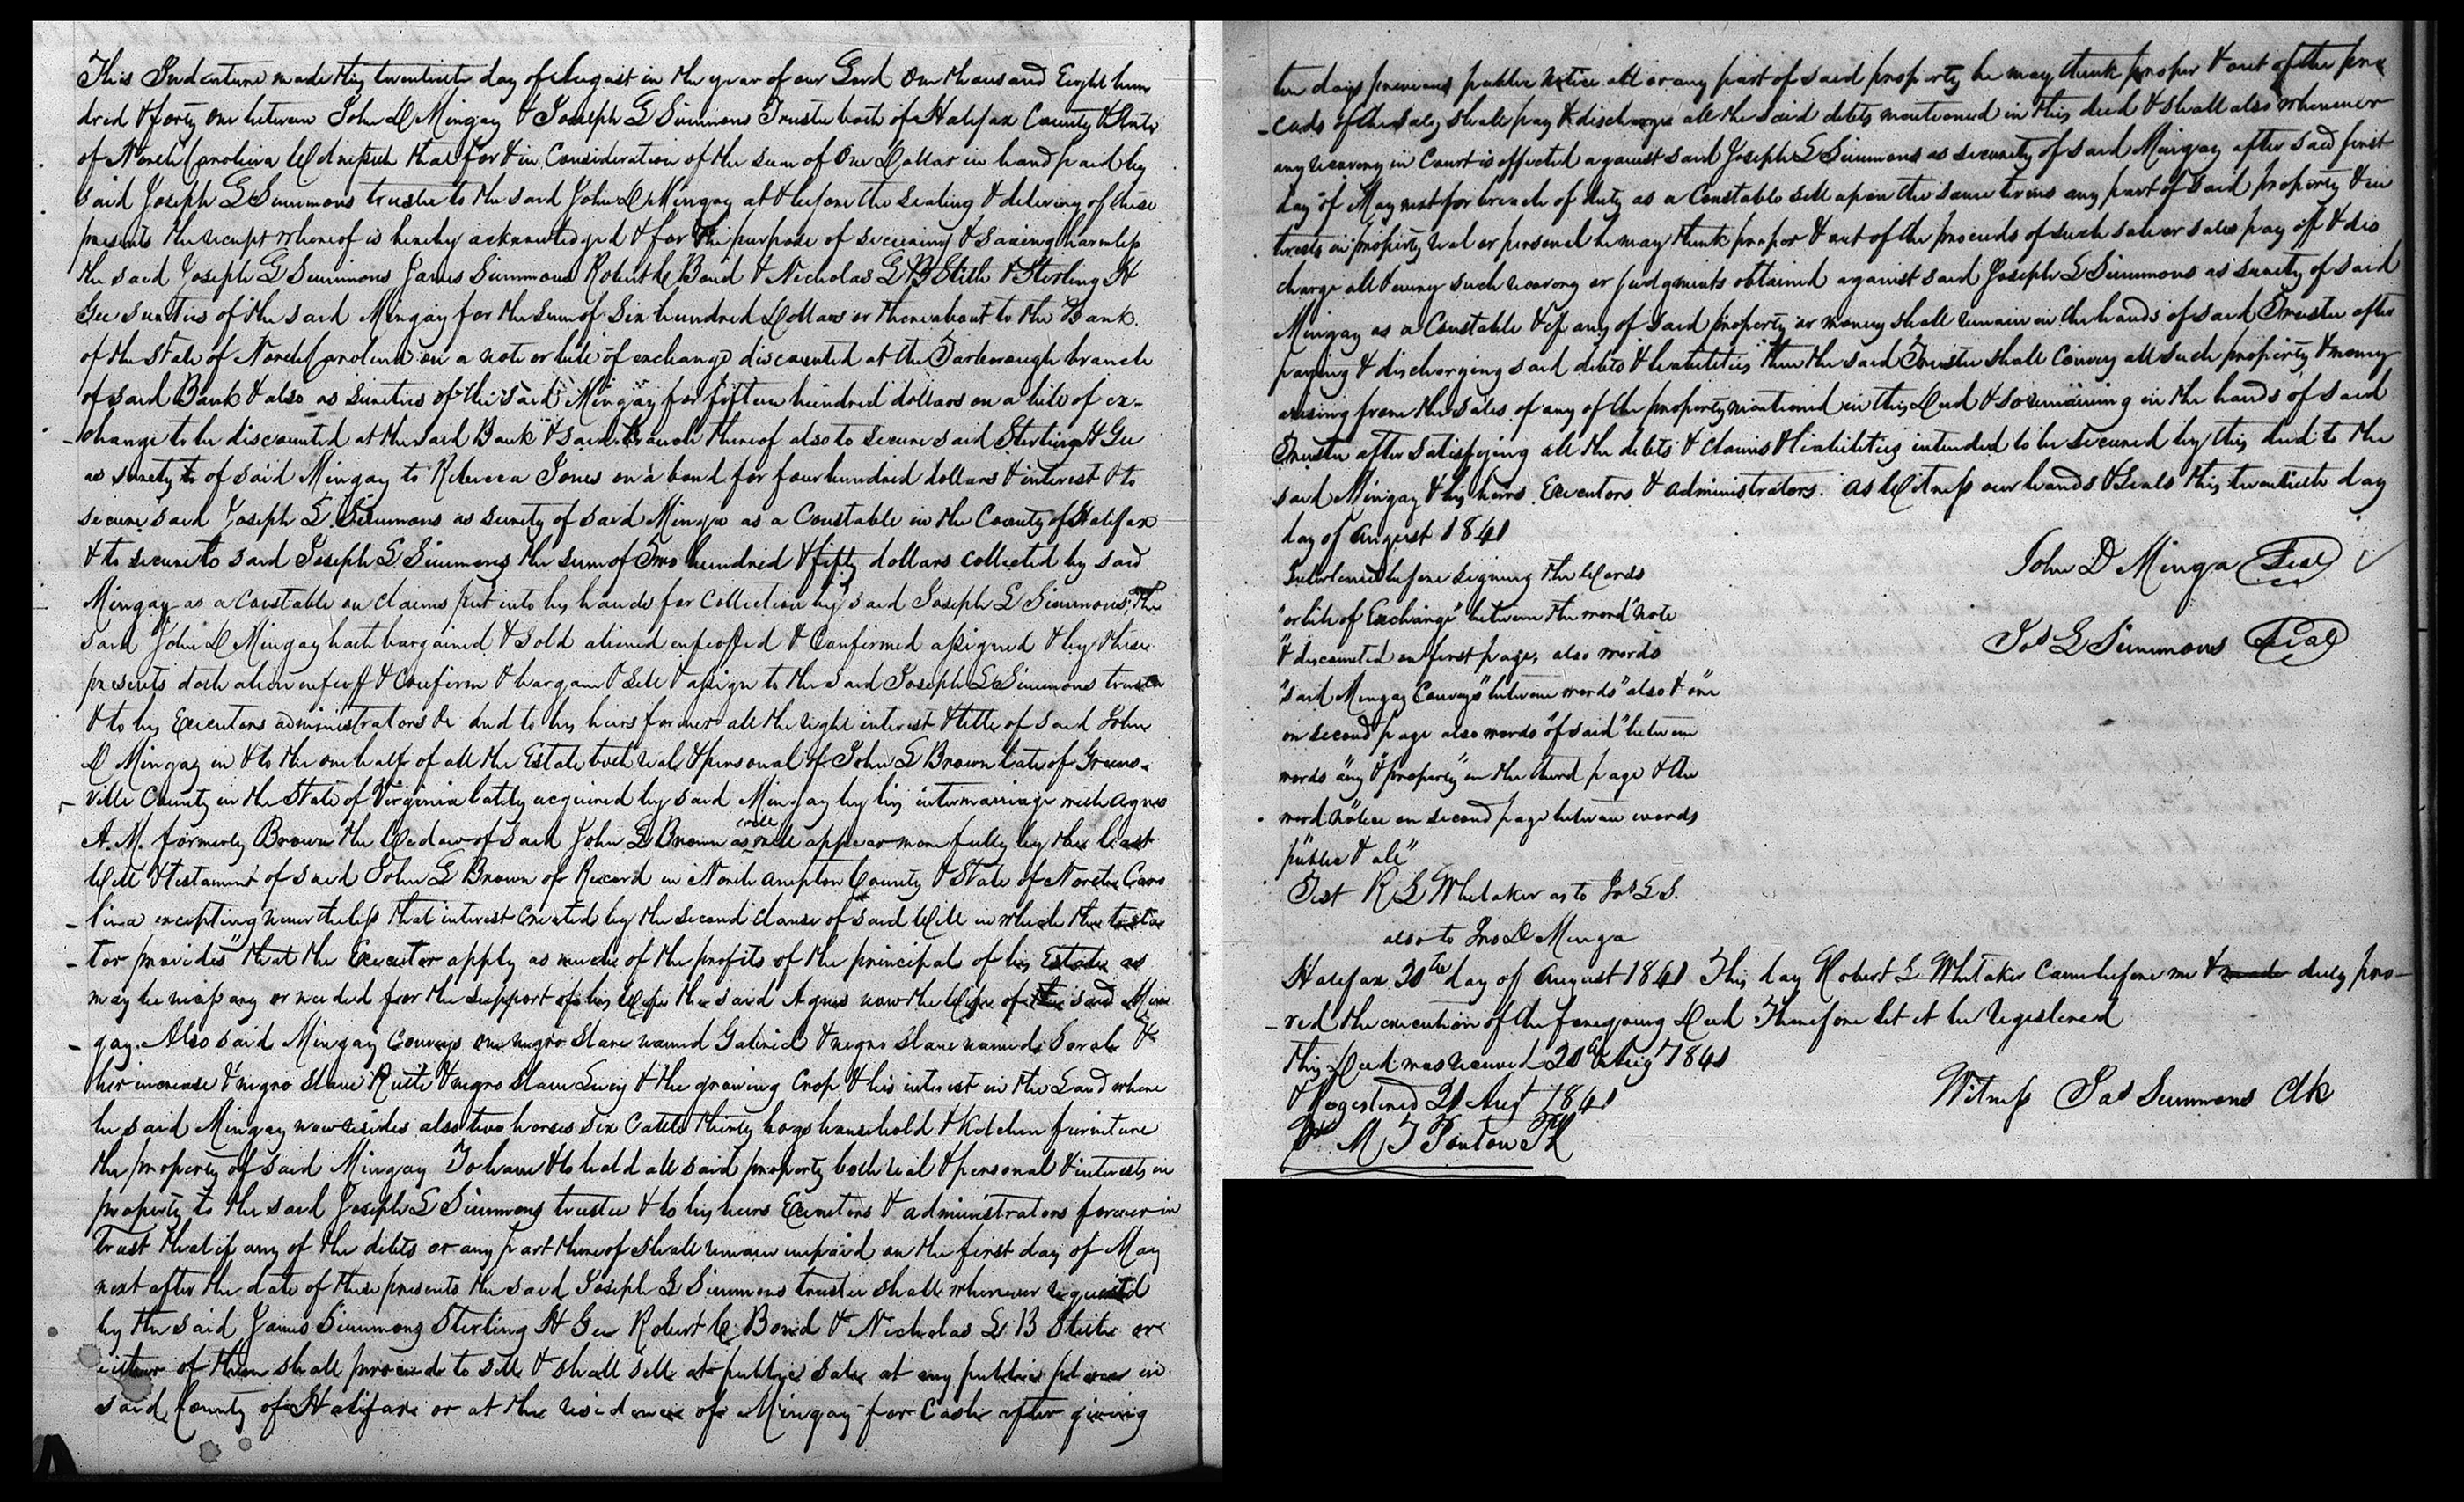 This Indenture made this twentieth day of August in the year of our Lord One thousand Eight hun
dred & forty one between John D Mingay & Joseph L Simmons Trustee both of Halifax County & State
of North Carolina Witnesseth that for & in Consideration of the sum of One Dollar in hand paid by
said Joseph L Simmons trustee to the said John D Mingay at & before the sealing & delivery of these
presents the receipt whereof is hereby acknowledged & for the purpose of securing & saving harmless
the said Joseph L Simmons James Simmons Robert C Bond & Nicholas L B Stith & Sterling H
Gee sureties of the said Mingay for the sum of Six hundred Dollars or thereabout to the Bank
of the State of North Carolina on a note or bill of exchange discounted at the Tarborough branch
of said Bank & also as sureties of the said Mingay for fifteen hundred dollars on a bill of ex-
-change to be discounted at the said Bank & said Branch thereof also to secure said Sterling H Gee
as surety to of said Mingay to Rebecca Jones on a bond for four hundred dollars & interest & to
secure said Joseph L Simmons as surety of said Minga as a Constable in the County of Halifax
& to secure to said Joseph L Simmons the sum of Two hundred & fifty dollars collected by said
Mingay as a constable on claims put into his hands for collection by said Joseph L Simmons, the
said John D Mingay hath bargained & sold aliened enfeoffed & Confirmed assigned & by these
presents doth alien enfeoff & Confirm & bargain & sell & assign to the said Joseph L Simmons trustee
& to his Executors administrators &c and to his heirs forever all the right interest & title of said John
D Mingay in & to the one half of all the Estate both real & personal of John L Brown late of Greens-
ville County in the State of Virginia lately acquired by said Mingay by his intermarriage with Agnes
A. M. formerly Brown the Widow of said John L Brown as will appear more fully by the last
Will & Testament of said John L Brown of Record in Northampton County & State of North Caro
-lina excepting nevertheless that interest created by the second clause of said Will in which the testa
-tor provides "that the Executor apply as much of the profits of the principal of his Estate as
may be necessary or needed for the support of his Wife the said Agnes now the Wife of the said Min
-gay. Also said Mingay Conveys one negro slave named Gabriel & negro slave named Sarah &
her increase & negro slave Ruth & negro slave Lucy & the growing Crop & his interest in the Land where
he said Mingay now resides also two horses six Cattle thirty hogs household & Kitchen furniture
the property of said Mingay To have & to hold all said property both real & personal & interests in
property to the said Joseph L Simmons trustee & to his heirs Executors & administrators forever in
trust that if any of the debts or any part thereof shall remain unpaid on the first day of May
next after the date of these presents the said Joseph L Simmons trustee shall whenever requested
by the said James Simmons Sterling H Gee Robert C Bond & Nicholas L B Stith or
either of them shall proceed to sell & shall sell at public sale at any public place in
said County of Halifax or at the residence of Mingay for Cash after giving
ten days previous public notice all or any part of said property he may think proper & out of the pro
-ceeds of the sales shall pay & discharge all the said debts mentioned in this deed & shall also whenever
any recovery in Court is effected against said Joseph L Simmons as security of said Mingay after said first
day of May next for breach of duty as a Constable sell upon the same terms any part of said property & in
terests in property real or personal he may think proper & out of the proceeds of such sale or sales pay off & dis
charge all & every such recovery or judgments obtained against said Joseph L Simmons as surety of said
Mingay as a Constable & if any of said property or money shall remain in the hands of said Trustee after
paying & discharging said debts & liabilities then the said Trustee shall Convey all such property & money
arising from the sales of any of the property mentioned in this Deed & so remaining in the hands of said
Trustee after satisfying all the debts & claims & liabilities intended to be secured by this deed to the
said Mingay & his heirs Executors & administrators. As Witness our hands & Seals this twentieth day
day of August 1841
John D Minga Seal
Jos L Simmons Seal
Interlined before signing the Words
"or bill of Exchange" between the word "note
"& discounted on first page, also words
"said Mingay Conveys" between words "also & one
on second page also words "of said" between
words "any & property" on the third page & the
word notice on second page between words
"public & all"
Test R L Whitaker as to Jos L S.
also to Jno D Minga
Halifax 20th day of August 1841 This day Robert L Whitaker Came before me & made duly pro-
-ved the execution of the foregoing Deed Therefore let it be registered
Witness Jas Simmons Clk
This Deed was received 20th Aug 1841
& Registered 21 Aug 1841
M T Ponton